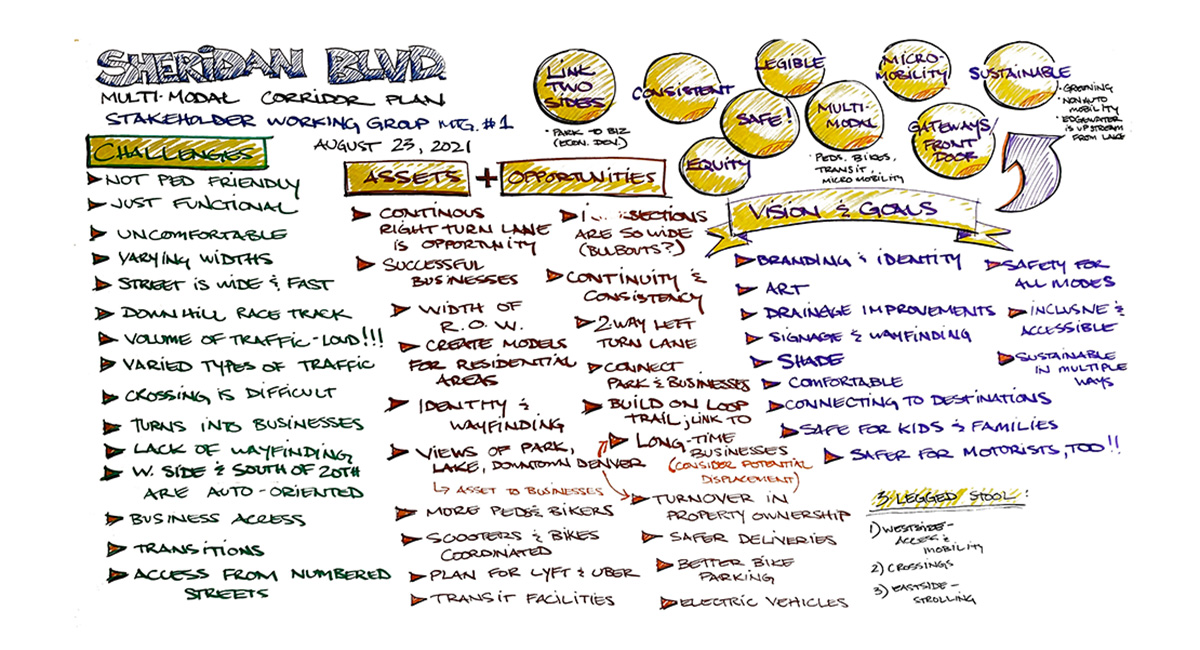 SHERIDAN BLVD
MULTI-MODAL CORRIDOR PLAN
STAKEHOLDER WORKING GROUP MTG. #1
AUGUST 23, 2021
LINK
TWO
SIDES
• PARK TO BIZ
(ECON. DEV.)
CONSISTENT
LEGIBLE
SAFE!
EQUITY
MULTI-
MODAL
• PEDS, BIKES,
TRANSIT,
MICRO MOBILITY
MICRO-
MOBILITY
GATEWAYS/
FRONT
DOOR
SUSTAINABLE
• GREENING
• NON AUTO
MOBILITY
• EDGEWATER
IS UPSTREAM
FROM LAKE
CHALLENGES
NOT PED FRIENDLY
JUST FUNCTIONAL
UNCOMFORTABLE
VARYING WIDTHS
STREET IS WIDE & FAST
DOWNHILL RACE TRACK
VOLUME OF TRAFFIC-LOUD!!!
VARIED TYPES OF TRAFFIC
CROSSING IS DIFFICULT
TURNS INTO BUSINESSES
LACK OF WAYFINDING
W. SIDE & SOUTH OF 20TH
ARE AUTO-ORIENTED
BUSINESS ACCESS
TRANSITIONS
ACCESS FROM NUMBERED
STREETS
ASSETS + OPPORTUNITIES
CONTINOUS
RIGHT TURN LANE
IS OPPORTUNITY
SUCCESSFUL
BUSINESSES
WIDTH OF
R.O.W.
CREATE MODELS
FOR RESIDENTIAL
AREAS
IDENTITY &
WAYFINDING
VIEWS OF PARK,
LAKE, DOWNTOWN DENVER
↳ ASSET TO BUSINESSES
MORE PEDS & BIKERS
SCOOTERS & BIKES
COORDINATED
PLAN FOR LYFT & UBER
TRANSIT FACILITIES
SECTIONS
ARE SO WIDE
(BULBOUTS?)
CONTINUITY &
CONSISTENCY
2-WAY LEFT
TURN LANE
CONNECT
PARK & BUSINESSES
BUILD ON LOOP
TRAIL; LINK TO
LONG-TIME
BUSINESSES
(CONSIDER POTENTIAL
DISPLACEMENT)
TURNOVER IN
PROPERTY OWNERSHIP
SAFER DELIVERIES
BETTER BIKE
PARKING
ELECTRIC VEHICLES
VISION & GOALS
BRANDING & IDENTITY
ART
DRAINAGE IMPROVEMENTS
SIGNAGE & WAYFINDING
SHADE
COMFORTABLE
CONNECTING TO DESTINATIONS
SAFE FOR KIDS & FAMILIES
SAFER FOR MOTORISTS, TOO!!
SAFETY FOR
ALL MODES
INCLUSIVE &
ACCESSIBLE
SUSTAINABLE
IN MULTIPLE
WAYS
3 LEGGED STOOL:
1) WESTSIDE-
ACCESS &
MOBILITY
2) CROSSINGS
3) EASTSIDE-
STROLLING